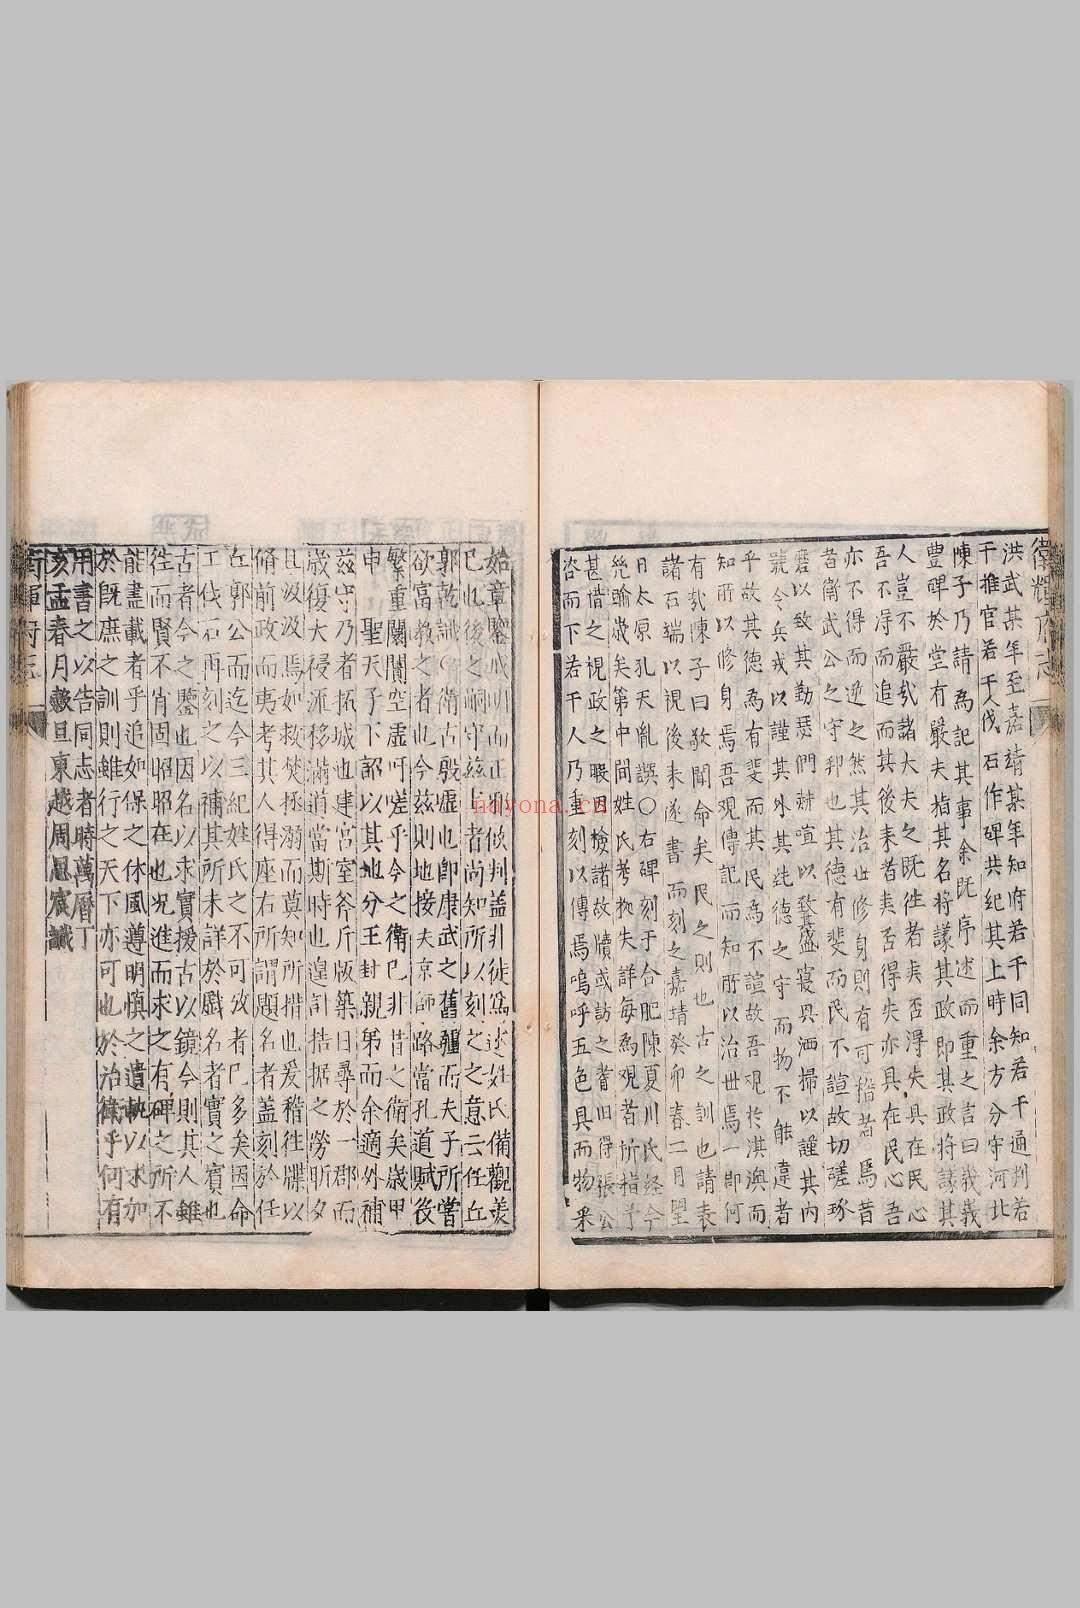 衛輝府志
洪武某年至嘉靖某年知府若干同知若干通判若
干推官若干人伐石作碑共紀其上時余方分守河北
陳子乃請為記其事余既序述而重之言曰峩峩
豐碑於堂有嚴夫指其名將議其政即其政將議其
人豈不嚴哉諸大夫之既徃者矣否淂失具在民心
吾不淂而追而其後耒者夷否得失亦具在民心吾
亦不得而逆之然其治世修身則有可稽者焉昔
者衛武公之守邦也其德有斐而民不諠故切磋琢
磨以致其勤瑟們赫喧以致其盛寝興洒掃以謹其内
號令兵戎以謹其外其純德之守而物不能違者
乎故其德為有斐而其民為不諠故吾觀於淇澳而
知所以修身焉吾观傳記而知所以治世焉一即何
有哉陳子曰敬聞命矣民之則也古之訓也請表
諸石端以視後耒遂書而刻之嘉靖癸卯春二月望
日太原孔天胤譔○右碑刻于合肥陳夏川氏経今
㡬踰歲矣第中間姓氏考抝失詳每為观者所指予
甚惜之視政之暇因檢諸故牘或訪之耆旧得張公
咨而下若干人乃重刻以傳焉嗚呼五色具而物采
始章鑒戒明而正
巳也後之嗣守兹土者尚知所以刻之之意云任丘
郭乾譔○衛古殷虛也即康武之舊疆而夫子所嘗
欲富教之者也今兹則地接夫京師路當孔道賦役
繁重閭闠空虛吁嗟乎今之衛巳非昔之衛矣歲甲
申聖天子下詔以其地分王封親第而余適外補
兹守乃者拓城也建宮室斧斤版築日尋於一郡而
歲復大祲流移滿道當斯時也遑計拮据之勞昕夕
且汲汲焉如救焚拯溺而莫知所措也爰稽徃牒以
脩前政而夷考其人得座右所謂題名者蓋刻於任
丘郭公而迄今三紀姓氏之不可攷者巳多矣因命
工伐石再刻之以補其所未詳於戲名者實之賓也
古者今之鑒也因名以求實援古以鏡今則其人雖
徃而賢不肖固昭昭在也况進而求之有碑之所不
能盡載者乎追如保之休風遵明慎之遺軌以求加
於既庶之訓則雖行之天下亦可也於治衛乎何有
用書之以告同志者時萬曆丁
亥孟春月穀旦東越周思宸識
nayona.cn